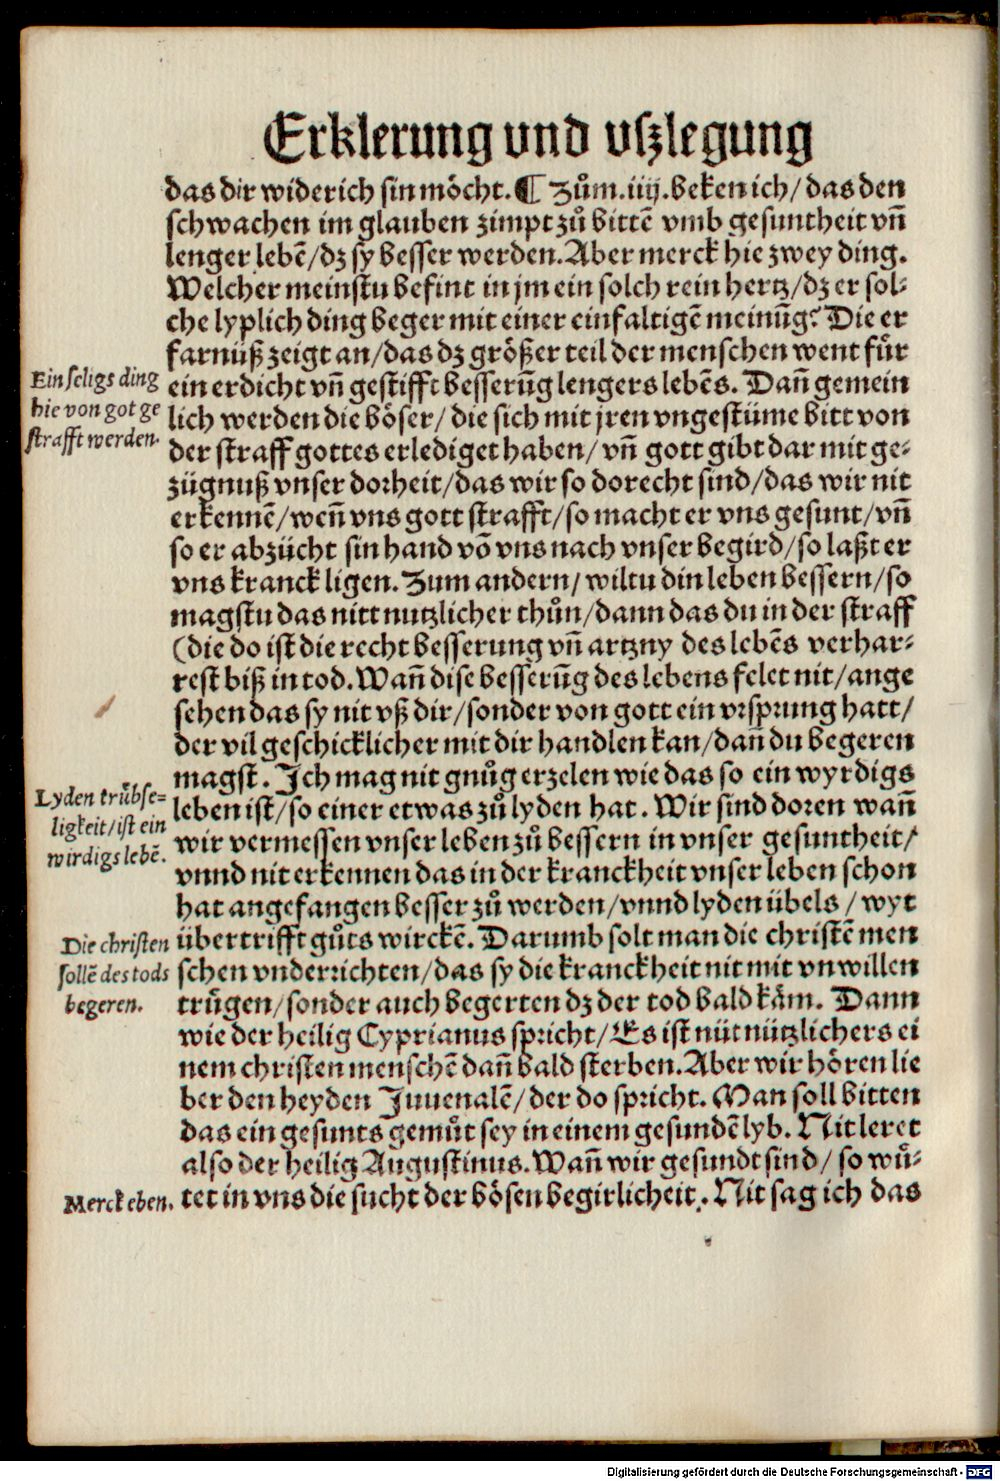 Erklerung vnd vſzlegung
das dir widerich ſin möcht. ¶ Zům .iiij. beken ich/ das den
ſchwachen im glauben zimpt zů bittē vmb geſuntheit vñ
lenger lebē/dz ſy beſſer werden. Aber merck hie zwey ding.
Welcher meinſtu befint in jm ein ſolch rein hertz/dz er ſol-
che lyplich ding beger mit einer einfaltigē meinūg? Die er
farnüß zeigt an/das dz größer teil der menſchen went für
Ein ſeligs ding
ein erdicht vñ geſtifft beſſerūg lengers lebēs. Dañ gemein
hie von got ge
lich werden die böſer/ die ſich mit jren vngeſtüme bitt von
ſtrafft werden.
der ſtraff gottes erlediget haben/ vñ gott gibt dar mit ge-
zügnuß vnſer dorheit/das wir ſo dorecht ſind/das wir nit
erkennē/weñ vns gott ſtrafft/ſo macht er vns geſunt/vñ
ſo er abzücht ſin hand vō vns nach vnſer begird/ſo laßt er
vns kranck ligen. Zum andern/ wiltu din leben beſſern/ſo
magſtu das nitt nutzlicher thůn/dann das du in der ſtraff
(die do iſt die recht beſſerung vñ artzny des lebēs verhar-
reſt biß in tod. Wañ diſe beſſerūg des lebens felet nit/ange
ſehen das ſy nit vß dir/ſonder von gott ein vrſprung hatt/
der vil geſchicklicher mit dir handlen kan/dañ du begeren
magſt. Ich mag nit gnůg erzelen wie das ſo ein wyrdigs
Lyden trůbſe-
leben iſt/ſo einer etwas zů lyden hat. Wir ſind doren wañ
ligkeit/iſt ein
wir vermeſſen vnſer leben zů beſſern in vnſer geſuntheit/
wirdigs lebē.
vnnd nit erkennen das in der kranckheit vnſer leben ſchon
hat angefangen beſſer zů werden/vnnd lyden übels / wyt
Die chriſten
übertrifft gůts wirckē. Darumb ſolt man die chriſtē men
ſollē des tods
ſchen vnderrichten/das ſy die kranckheit nit mit vnwillen
begeren.
trůgen/ſonder auch begerten dz der tod bald käm. Dann
wie der heilig Cyprianus ſpricht/Es iſt nüt nützlichers ei
nem chriſten menſchē dañ bald ſterben. Aber wir hören lie
ber den heyden Juuenalē/der do ſpricht. Man ſoll bitten
das ein geſunts gemůt ſey in einem geſundē lyb. Nit leret
alſo der heilig Auguſtinus. Wañ wir geſundt ſind/ ſo wů-
Merck eben.
tet in vns die ſucht der böſen begirlicheit. Nit ſag ich das
Digitalisierung gefördert durch die Deutsche Forschungsgemeinschaft - DFG